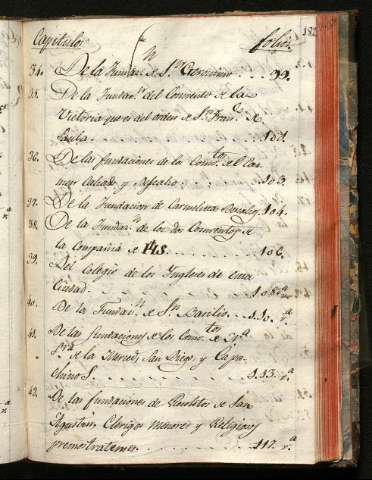 Capitulos folios
34. De la Fundan. de Sn. Geronimo . . 99.
35. De la Fundan. del Convento de la
Victoria que es del orden de Sn. Franco. de
Paula . . . . . . . . 101.
36. De las fundaciones de los Comtos. del Car-
men Calzado y Descalzo . . . 103.
37. De la Fundacion de Carmelitas Descalzas 104.
38. De la Fundan. de los dos Conventos de
la Compañia de JHS . . . . 106.
39. Del Colegio de los Yngleses de esta
Ciudad . . . . . . . 108 va.
40. De la Fundan. de Sn. Basilio . . 110. va.
41. De las fundaciones de los Comtos. de Nra.
Sra. de la Merced, San Diego, y Capu-
chinos . . . . . . . 113. va.
42. De las fundaciones de Recoletos de San
Agustin, Clerigos menores y Religiosos
premostratenses . . . . . 117. va.